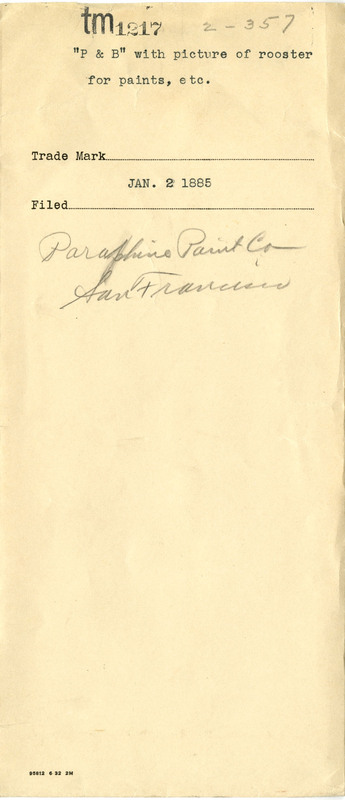 tm 1217 2-357
"P & B" with picture of rooster
for paints, etc.
Trade Mark
JAN. 2 1885
Filed
Paraphine Paint Co
San Francisco
95612 6-32 2M